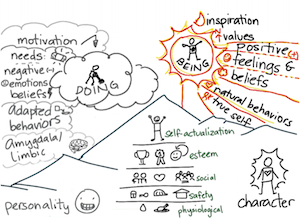 motivation
needs
negative (-)
emotions
beliefs
adapted
behaviors
amygdala/
limbic
DOING
inspiration
values
BEING
positive (+)
feelings &
beliefs
natural behaviors
true
self
self-actualization
esteem
social
safety
physiological
personality
character